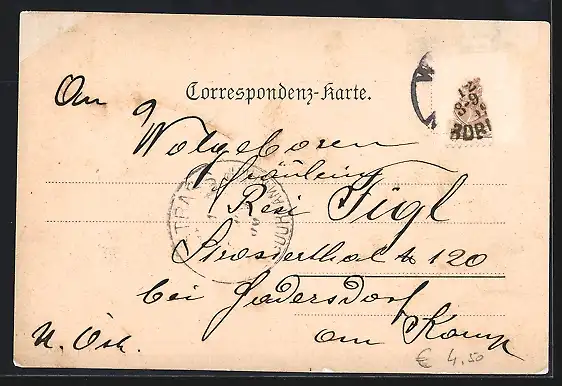 Correspondenz-Karte.
An
Wolgeboren
Fräulein
Resi Figl
Strasserthal № 120
bei Hadersdorf
am Kamp
N. Öst.
€ 4.50